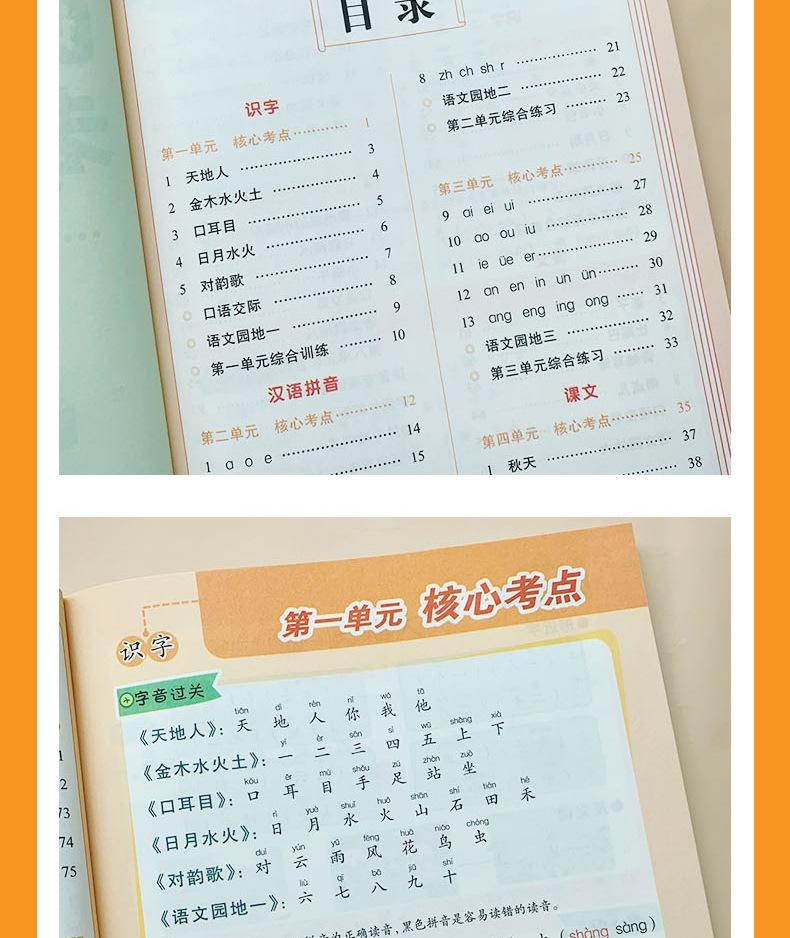 目录
识字
第一单元 核心考点············ 1
1 天地人 ············ 3
2 金木水火土 ············ 4
3 口耳目 ············ 5
4 日月水火 ············ 6
5 对韵歌 ············ 7
口语交际 ············ 8
语文园地一 ············ 9
第一单元综合训练 ············ 10
汉语拼音
第二单元 核心考点············ 12
1 a o e ············ 14
15
8 zh ch sh r ············ 21
语文园地二 ············ 22
第二单元综合练习 ············ 23
第三单元 核心考点············ 25
9 ai ei ui ············ 27
10 ao ou iu ············ 28
11 ie üe er············ 29
12 an en in un ün············ 30
13 ang eng ing ong ············ 31
语文园地三 ············ 32
第三单元综合练习 ············ 33
课文
第四单元 核心考点············ 35
1 秋天 ············ 37
38
第一单元 核心考点
识字
字音过关
tiān dì rén nǐ wǒ tā
《天地人》：天 地 人 你 我 他
yī èr sān sì wǔ shàng xià
《金木水火土》：一 二 三 四 五 上 下
kǒu ěr mù shǒu zú zhàn zuò
《口耳目》：口 耳 目 手 足 站 坐
rì yuè shuǐ huǒ shān shí tián hé
《日月水火》：日 月 水 火 山 石 田 禾
duì yún yǔ fēng huā niǎo chóng
《对韵歌》：对 云 雨 风 花 鸟 虫
liù qī bā jiǔ shí
《语文园地一》：六 七 八 九 十
为正确读音，黑色拼音是容易读错的读音。
（shàng sàng）
73
74
75